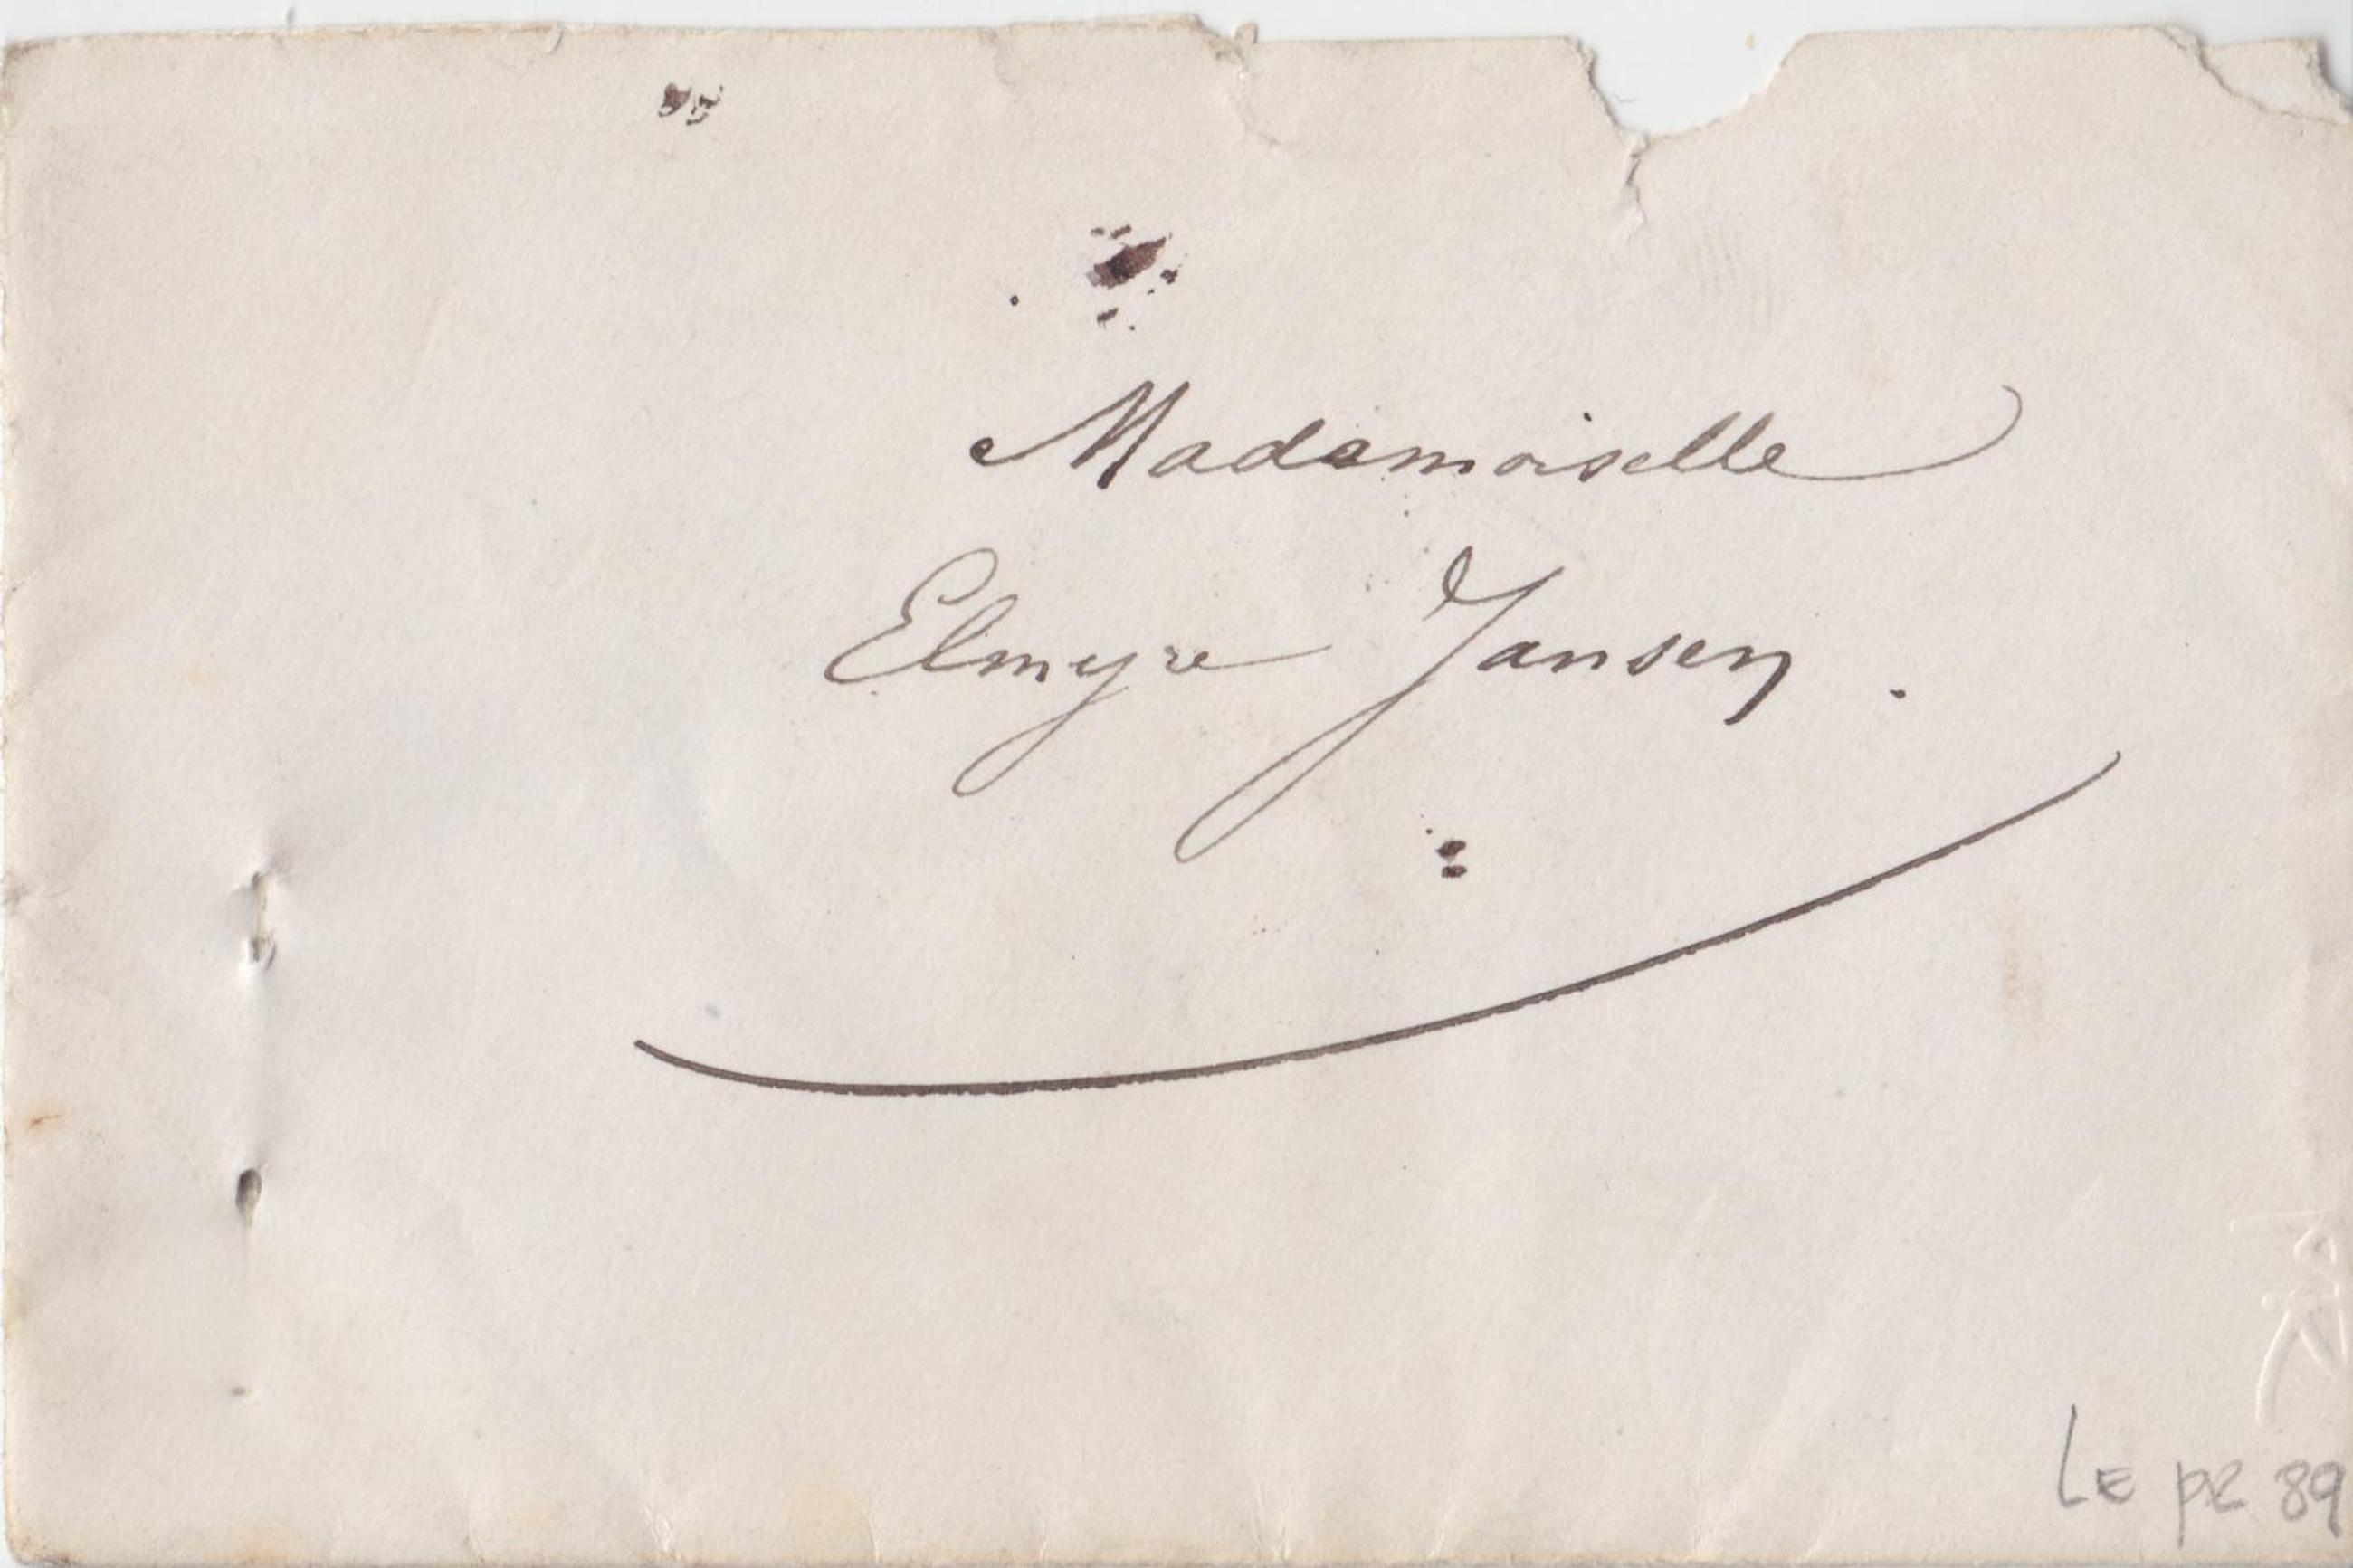 Mademoiselle
Elmyre Jansen.
LE pr 89